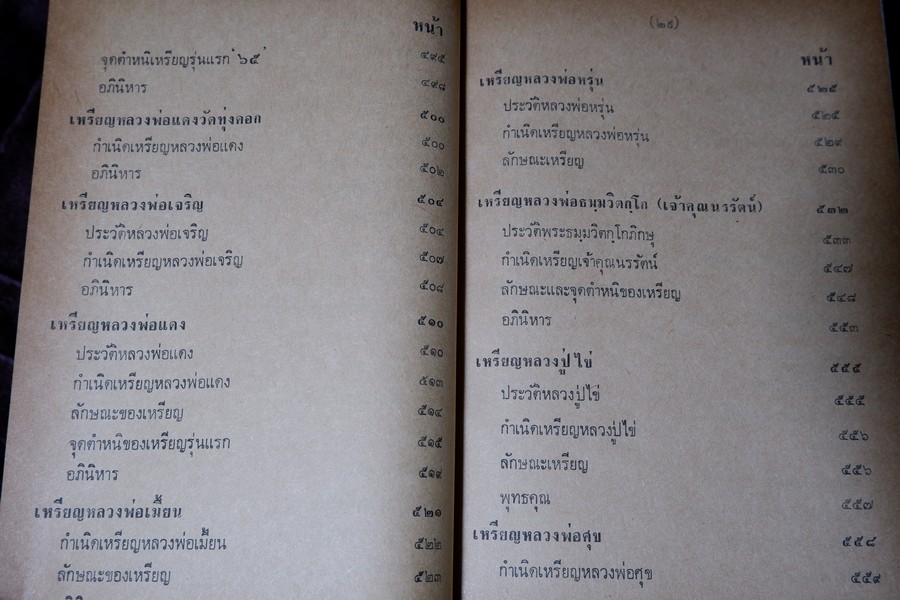 หน้า
จุดตำหนิเหรียญรุ่นแรก '๖๕' ๔๙๕
อภินิหาร ๔๙๘
เหรียญหลวงพ่อแดงวัดทุ่งคอก ๕๐๐
กำเนิดเหรียญหลวงพ่อแดง ๕๐๐
อภินิหาร ๕๐๒
เหรียญหลวงพ่อเจริญ ๕๐๔
ประวัติหลวงพ่อเจริญ ๕๐๔
กำเนิดเหรียญหลวงพ่อเจริญ ๕๐๗
อภินิหาร ๕๐๘
เหรียญหลวงพ่อแดง ๕๑๐
ประวัติหลวงพ่อแดง ๕๑๐
กำเนิดเหรียญหลวงพ่อแดง ๕๑๓
ลักษณะของเหรียญ ๕๑๔
จุดตำหนิของเหรียญรุ่นแรก ๕๑๕
อภินิหาร ๕๑๙
เหรียญหลวงพ่อเมี้ยน ๕๒๑
กำเนิดเหรียญหลวงพ่อเมี้ยน ๕๒๒
ลักษณะของเหรียญ ๕๒๓
(๒๙)
หน้า
เหรียญหลวงพ่อหรุ่น ๕๒๕
ประวัติหลวงพ่อหรุ่น ๕๒๕
กำเนิดเหรียญหลวงพ่อหรุ่น ๕๒๙
ลักษณะเหรียญ ๕๓๐
เหรียญหลวงพ่อธมฺมวิตกฺโก (เจ้าคุณนรรัตน์) ๕๓๒
ประวัติพระธมฺมวิตกฺโกภิกษุ ๕๓๓
กำเนิดเหรียญเจ้าคุณนรรัตน์ ๕๔๗
ลักษณะและจุดตำหนิของเหรียญ ๕๔๘
อภินิหาร ๕๕๓
เหรียญหลวงปู่ไข่ ๕๕๕
ประวัติหลวงปู่ไข่ ๕๕๕
กำเนิดเหรียญหลวงปู่ไข่ ๕๕๖
ลักษณะเหรียญ ๕๕๖
พุทธคุณ ๕๕๗
เหรียญหลวงพ่อศุข ๕๕๘
กำเนิดเหรียญหลวงพ่อศุข ๕๕๙